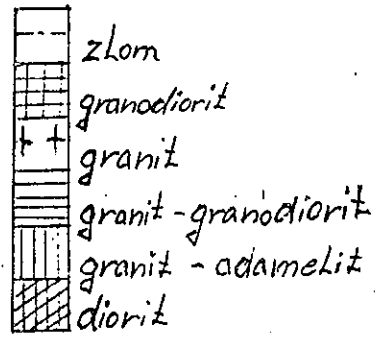 zlom
granodiorit
granit
granit-granodiorit
granit-adamelit
diorit